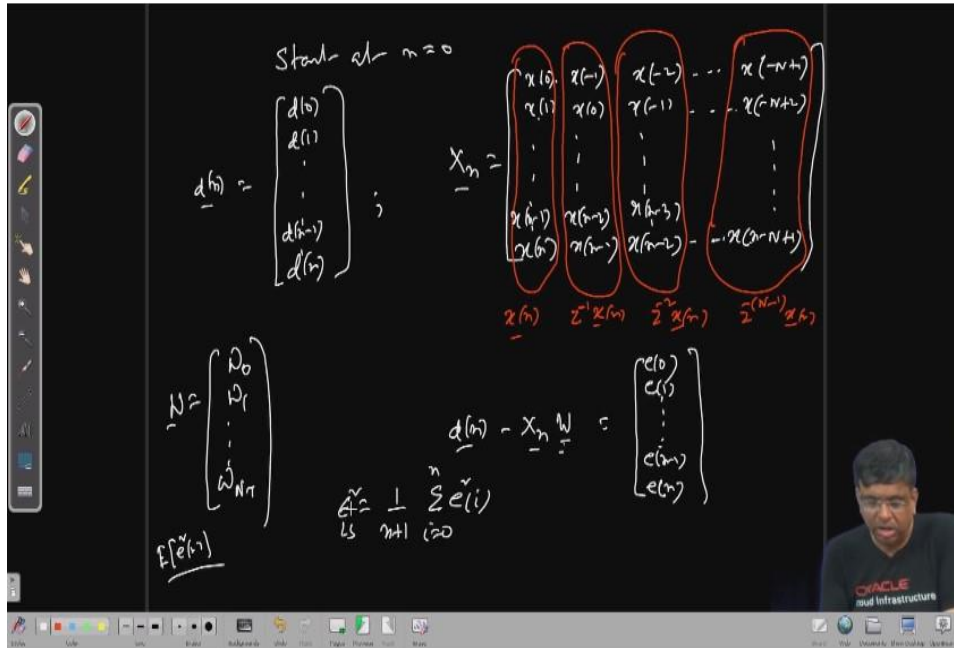 Start at n=0
d(n) = [ d(0) d(1) ⋮ d(n-1) d(n) ] ;
X_n = [
x(0) x(-1) x(-2) ... x(-N+1)
x(1) x(0) x(-1) ... x(-N+2)
x(n-1) x(n-2) x(n-3)
x(n) x(n-1) x(n-2) ... x(n-N+1)
]
x(n) z^-1 x(n) z^-2 x(n) z^-(N-1) x(n)
W = [ W_0 W_1 ⋮ W_N-1 ]
d(n) - X_n W = [ e(0) e(1) ⋮ e(n-1) e(n) ]
ε²_LS = 1/(n+1) Σ_{i=0}^{n} e²(i)
E[e²(n)]
ORACLE
Cloud Infrastructure